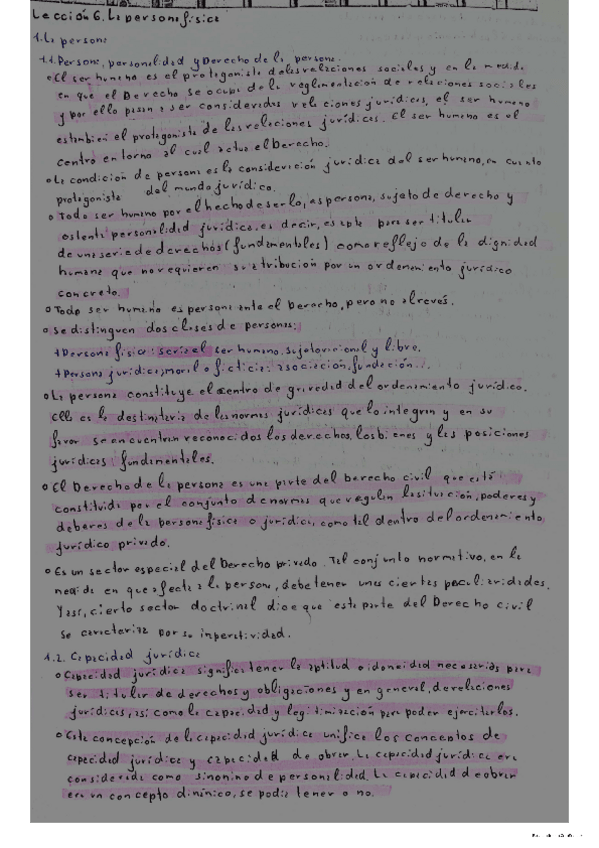 Lección 6. La persona física
1. La persona
1.1. Persona, personalidad y Derecho de la persona.
• El ser humano es el protagonista de las relaciones sociales y en la medida
en que el Derecho se ocupa de la reglamentación de relaciones sociales
y por ello pasan a ser consideradas relaciones jurídicas, el ser humano
es también el protagonista de las relaciones jurídicas. El ser humano es el
centro en torno al cual actua el Derecho.
• La condición de persona es la consideración jurídica del ser humano, en cuanto
protagonista del mundo jurídico.
• Todo ser humano por el hecho de serlo, es persona, sujeto de derecho y
ostenta personalidad jurídica, es decir, es apto para ser titular
de una serie de derechos (fundamentales) como reflejo de la dignidad
humana que no requieren su atribución por un ordenamiento jurídico
concreto.
• Todo ser humano es persona ante el Derecho, pero no al revés.
• Se distinguen dos clases de personas:
+ Persona física: sería el ser humano. Sujeto racional y libre.
+ Persona jurídica, moral o ficticia: asociación, fundación...
• La persona constituye el centro de gravedad del ordenamiento jurídico.
Ella es la destinataria de las normas jurídicas que lo integran y en su
favor se encuentran reconocidos los derechos, los bienes y las posiciones
jurídicas fundamentales.
• El Derecho de la persona es una parte del Derecho civil que está
constituida por el conjunto de normas que regulan la situación, poderes y
deberes de la persona física o jurídica, como tal dentro del ordenamiento
jurídico privado.
• Es un sector especial del Derecho privado. Tal conjunto normativo, en la
medida en que afecta a la persona, debe tener unas ciertas peculiaridades.
Y así, cierto sector doctrinal dice que esta parte del Derecho civil
se caracteriza por su imperatividad.
1.2. Capacidad jurídica
• Capacidad jurídica significa tener la aptitud o idoneidad necesarias para
ser titular de derechos y obligaciones y en general, de relaciones
jurídicas, así como la capacidad y legitimación para poder ejercitarlos.
• Esta concepción de la capacidad jurídica unifica los conceptos de
capacidad jurídica y capacidad de obrar. La capacidad jurídica era
considerada como sinonino de personalidad. La capacidad de obrar
era un concepto dinámico, se podía tener o no.